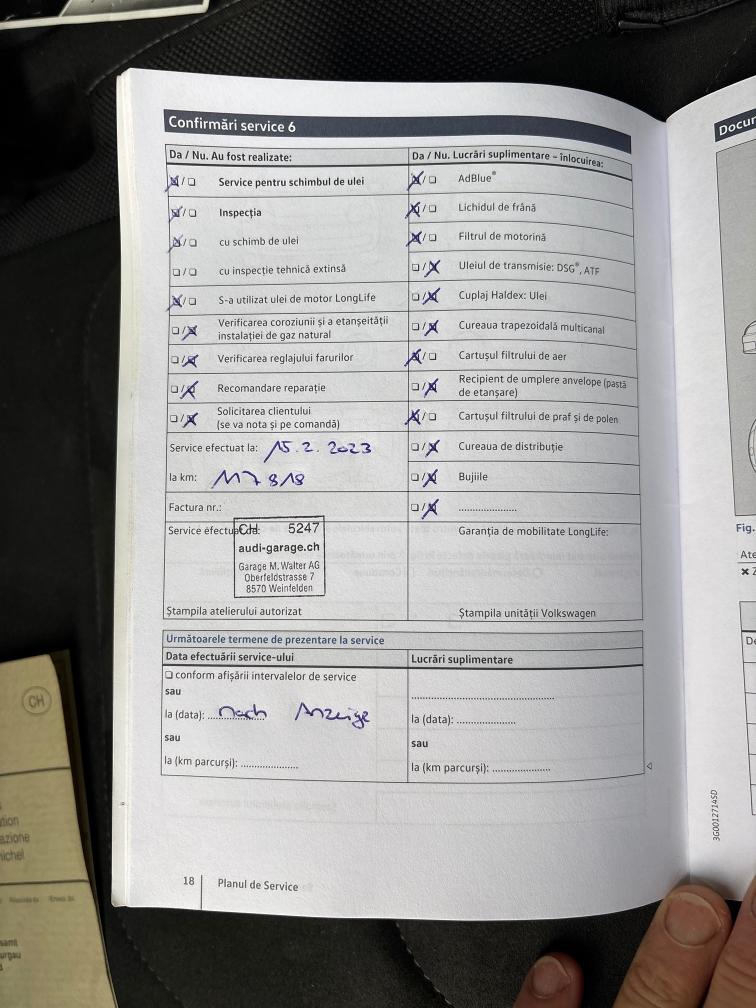 Confirmări service 6
Da / Nu. Au fost realizate:
☒/☐ Service pentru schimbul de ulei
☒/☐ Inspecția
☒/☐ cu schimb de ulei
☐/☐ cu inspecție tehnică extinsă
☒/☐ S-a utilizat ulei de motor LongLife
☐/☒ Verificarea coroziunii și a etanșeității
instalației de gaz natural
☐/☒ Verificarea reglajului farurilor
☐/☒ Recomandare reparație
☐/☒ Solicitarea clientului
(se va nota și pe comandă)
Service efectuat la: 15.2.2023
la km: 117 818
Factura nr.:
Service efectu
CH 5247
audi-garage.ch
Garage M. Walter AG
Oberfeldstrasse 7
8570 Weinfelden
Ștampila atelierului autorizat
Da / Nu. Lucrări suplimentare – înlocuirea:
☒/☐ AdBlue®
☒/☐ Lichidul de frână
☒/☐ Filtrul de motorină
☐/☒ Uleiul de transmisie: DSG®, ATF
☐/☒ Cuplaj Haldex: Ulei
☐/☒ Cureaua trapezoidală multicanal
☒/☐ Cartușul filtrului de aer
☐/☒ Recipient de umplere anvelope (pastă
de etanșare)
☒/☐ Cartușul filtrului de praf și de polen
☐/☒ Cureaua de distribuție
☐/☒ Bujiile
☐/☒ .....................
Garanția de mobilitate LongLife:
Ștampila unității Volkswagen
Următoarele termene de prezentare la service
Data efectuării service-ului
☐ conform afișării intervalelor de service
sau
la (data): nach Anzeige
sau
la (km parcurși): .....................
Lucrări suplimentare
.....................
la (data): .....................
sau
la (km parcurși): .....................
18 Planul de Service
3G0012714SD
Docum
Fig.
Ate
CH
azione